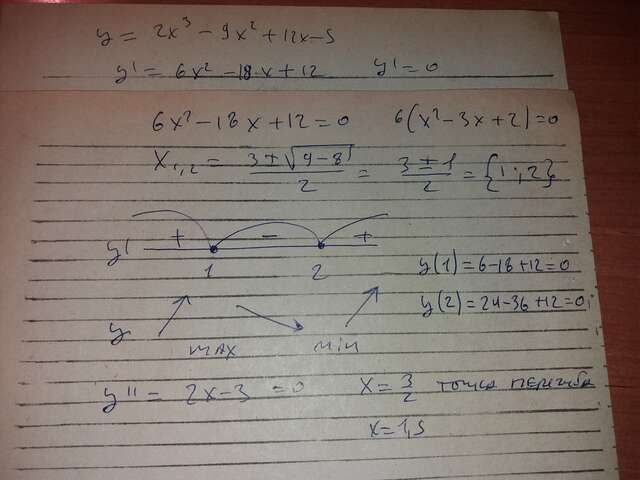 y = 2x³ - 9x² + 12x - 5
y' = 6x² - 18x + 12 y' = 0
6x² - 18x + 12 = 0 6(x² - 3x + 2) = 0
x₁,₂ = (3 ± √(9 - 8))/2 = (3 ± 1)/2 = {1; 2}
y' + 1 - 2 + y(1) = 6 - 18 + 12 = 0
y ↗ ↘ ↗ y(2) = 24 - 36 + 12 = 0
max min
y'' = 2x - 3 = 0 x = 3/2 точка перегиба
x = 1,5